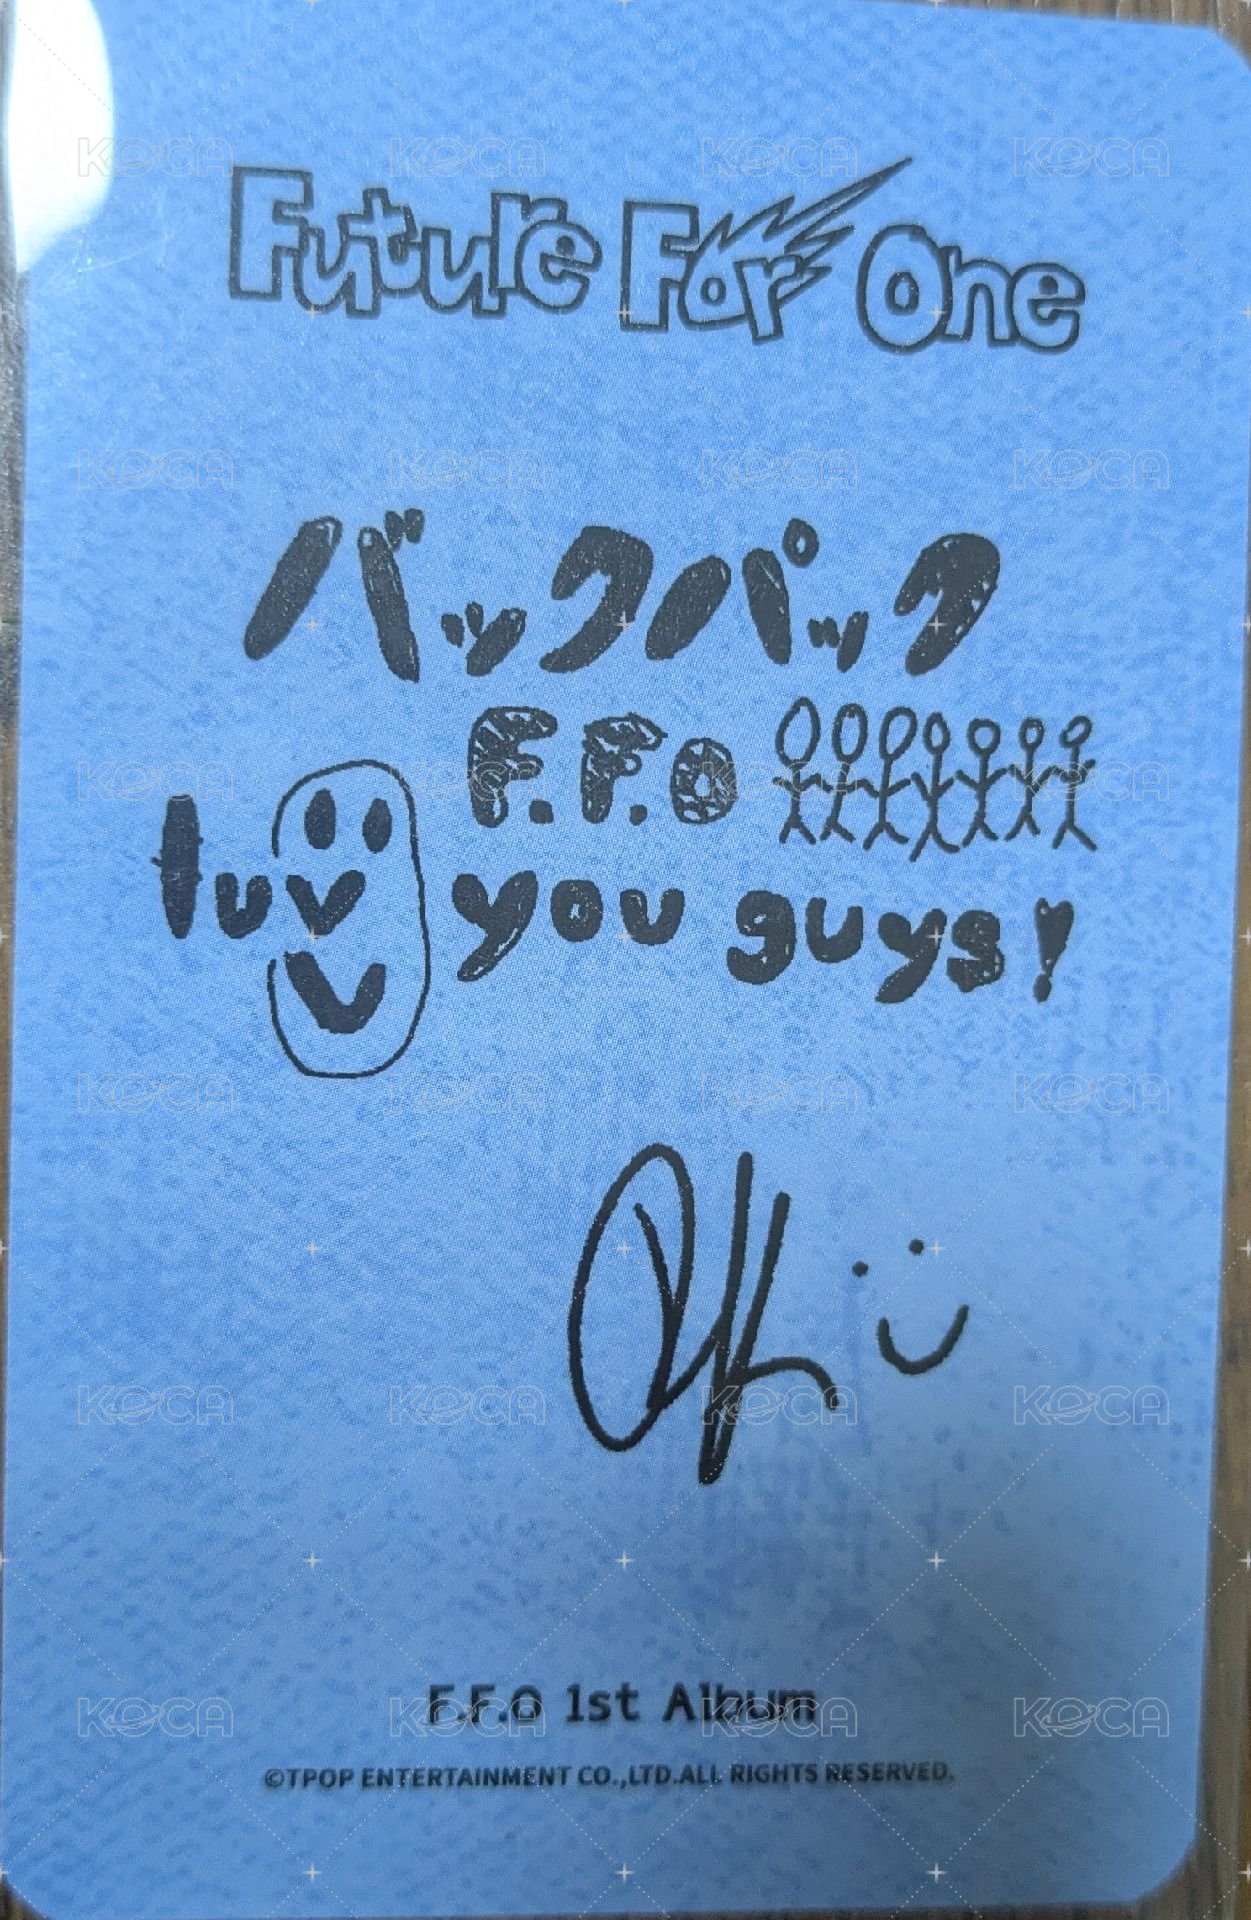 Future For One
バックパック
F.F.O
luv you guys!
F.F.O 1st Album
©TPOP ENTERTAINMENT CO.,LTD.ALL RIGHTS RESERVED.
KOCA